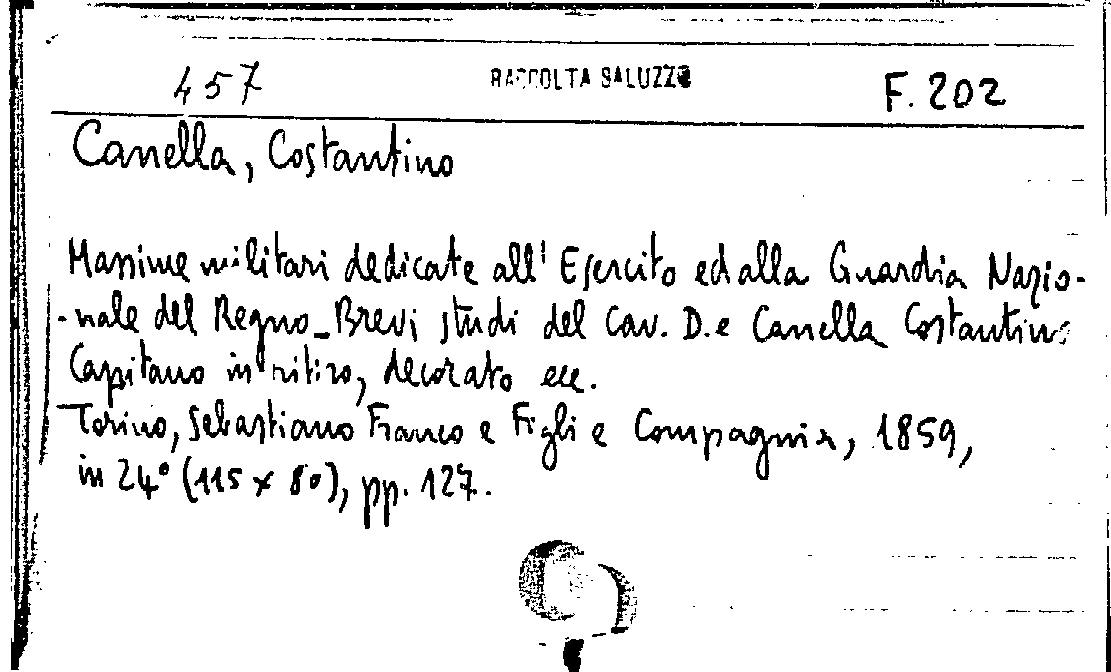 457 RACCOLTA SALUZZO F. 202
Canella, Costantino
Massime militari dedicate all' Esercito ed alla Guardia Nazio-
-nale del Regno_Brevi studi del Cav. D.e Canella Costantino
Capitano in ritiro, decorato ecc.
Torino, Sebastiano Franco e Figli e Compagnia, 1859,
in 24° (115 x 80), pp. 127.